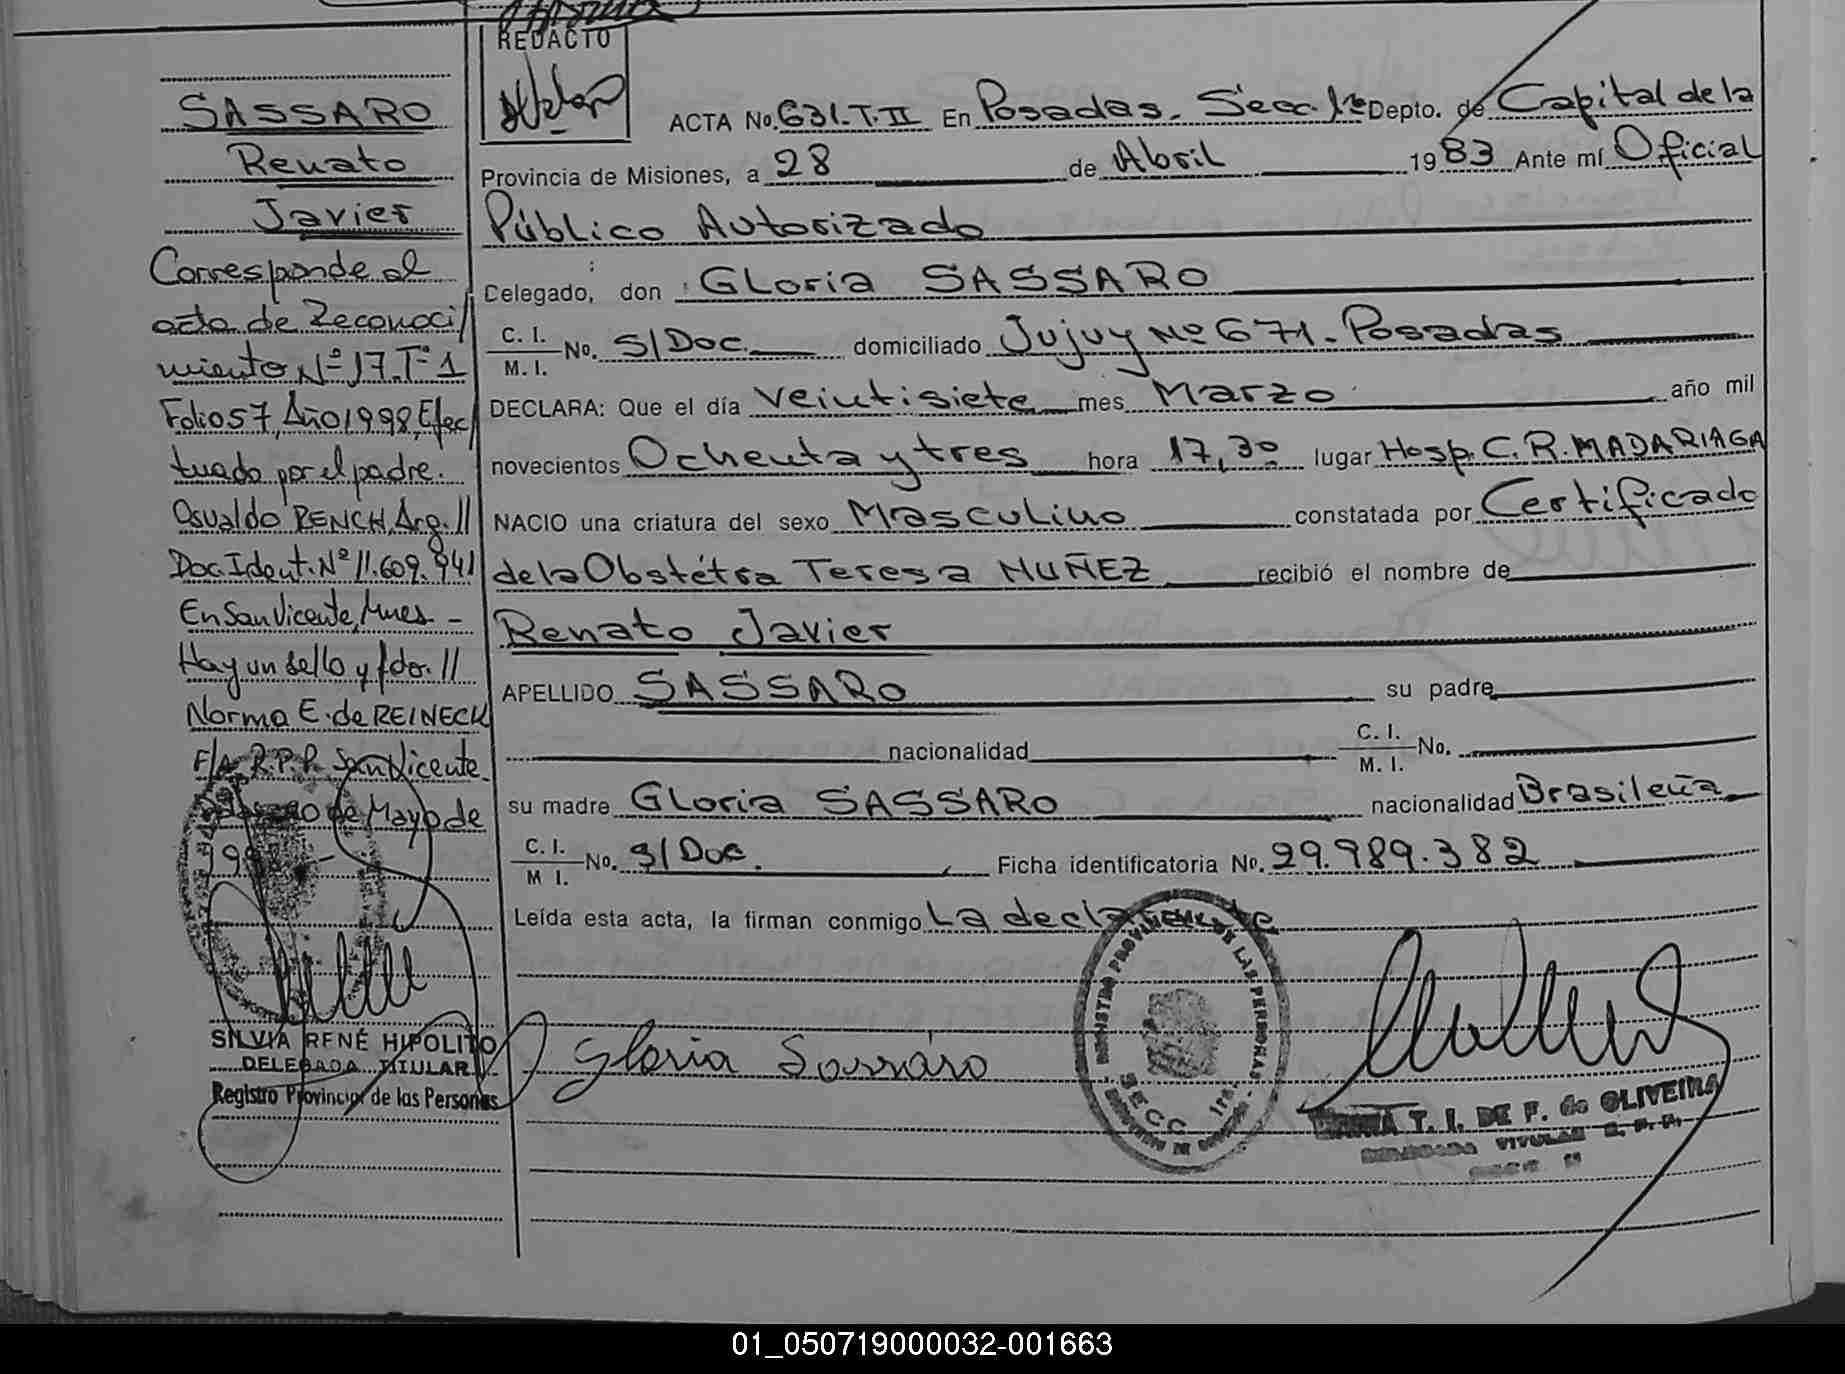 REDACTO
SASSARO
Renato
Javier
Corresponde al
acta de Reconoci//
miento Nº 17.Tº1
Folio 57, Año 1998, Efec//
tuado por el padre.
Osvaldo RENCH, Arg.//
Doc. Ident. Nº 11.609.941
En San Vicente, Mnes -
Hay un sello y fdo. //
Norma E. de REINECK
F/A R.P.P. San Vicente.
de Mayo de
199
SILVIA RENÉ HIPOLITO
DELEGADA TITULAR
Registro Provincial de las Personas
ACTA No. 631.T.II En Posadas. Secc. 1ª Depto. de Capital de la
Provincia de Misiones, a 28 de Abril 1983 Ante mí Oficial
Público Autorizado
Delegado, don Gloria SASSARO
C. I.
M. I. No. S/Doc. domiciliado Jujuy Nº 671. Posadas
DECLARA: Que el día Veintisiete mes Marzo año mil
novecientos Ochenta y tres hora 17,30 lugar Hosp. C. R. MADARIAGA
NACIO una criatura del sexo Masculino constatada por Certificado
de la Obstétra Teresa NUÑEZ recibió el nombre de
Renato Javier
APELLIDO SASSARO su padre
nacionalidad C. I.
M. I. No.
su madre Gloria SASSARO nacionalidad Brasileña
C. I.
M I. No. S/Doc. Ficha identificatoria No. 29.989.382
Leída esta acta, la firman conmigo La declarante
Gloria Sassaro
REGISTRO PROVINCIAL DE LAS PERSONAS
SECC 1ra.
T. I. DE F. de OLIVEIRA
DELEGADA TITULAR R. P. P.
01_050719000032-001663